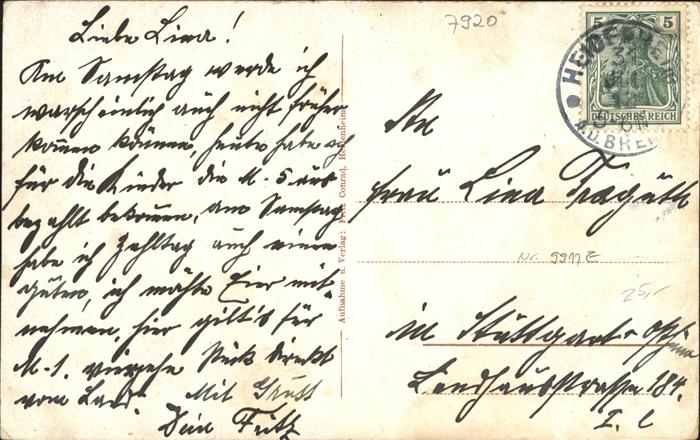 Liebe Lina!
Am Samstag werde ich
warscheinlich auch nicht früher
kommen können, heute habe ich
für die Kinder die M. 5 aus
bezahlt bekommen, am Samstag
habe ich Zahltag auch einen
guten, ich möchte Eier mit-
nehmen, hier gilt's für
M-1. vierzehn Stück direkt
vom Land.
Mit Gruss
Dein Fritz
Aufnahme u. Verlag: Fritz Conrad, Heidenheim
7920
5 5
DEUTSCHES REICH
HEIDENHEIM
A.D. BRENZ
An
Frau Lina
Nr. 9911 E
25,-
in Stuttgart-
Landhausstrasse 184.
I. l